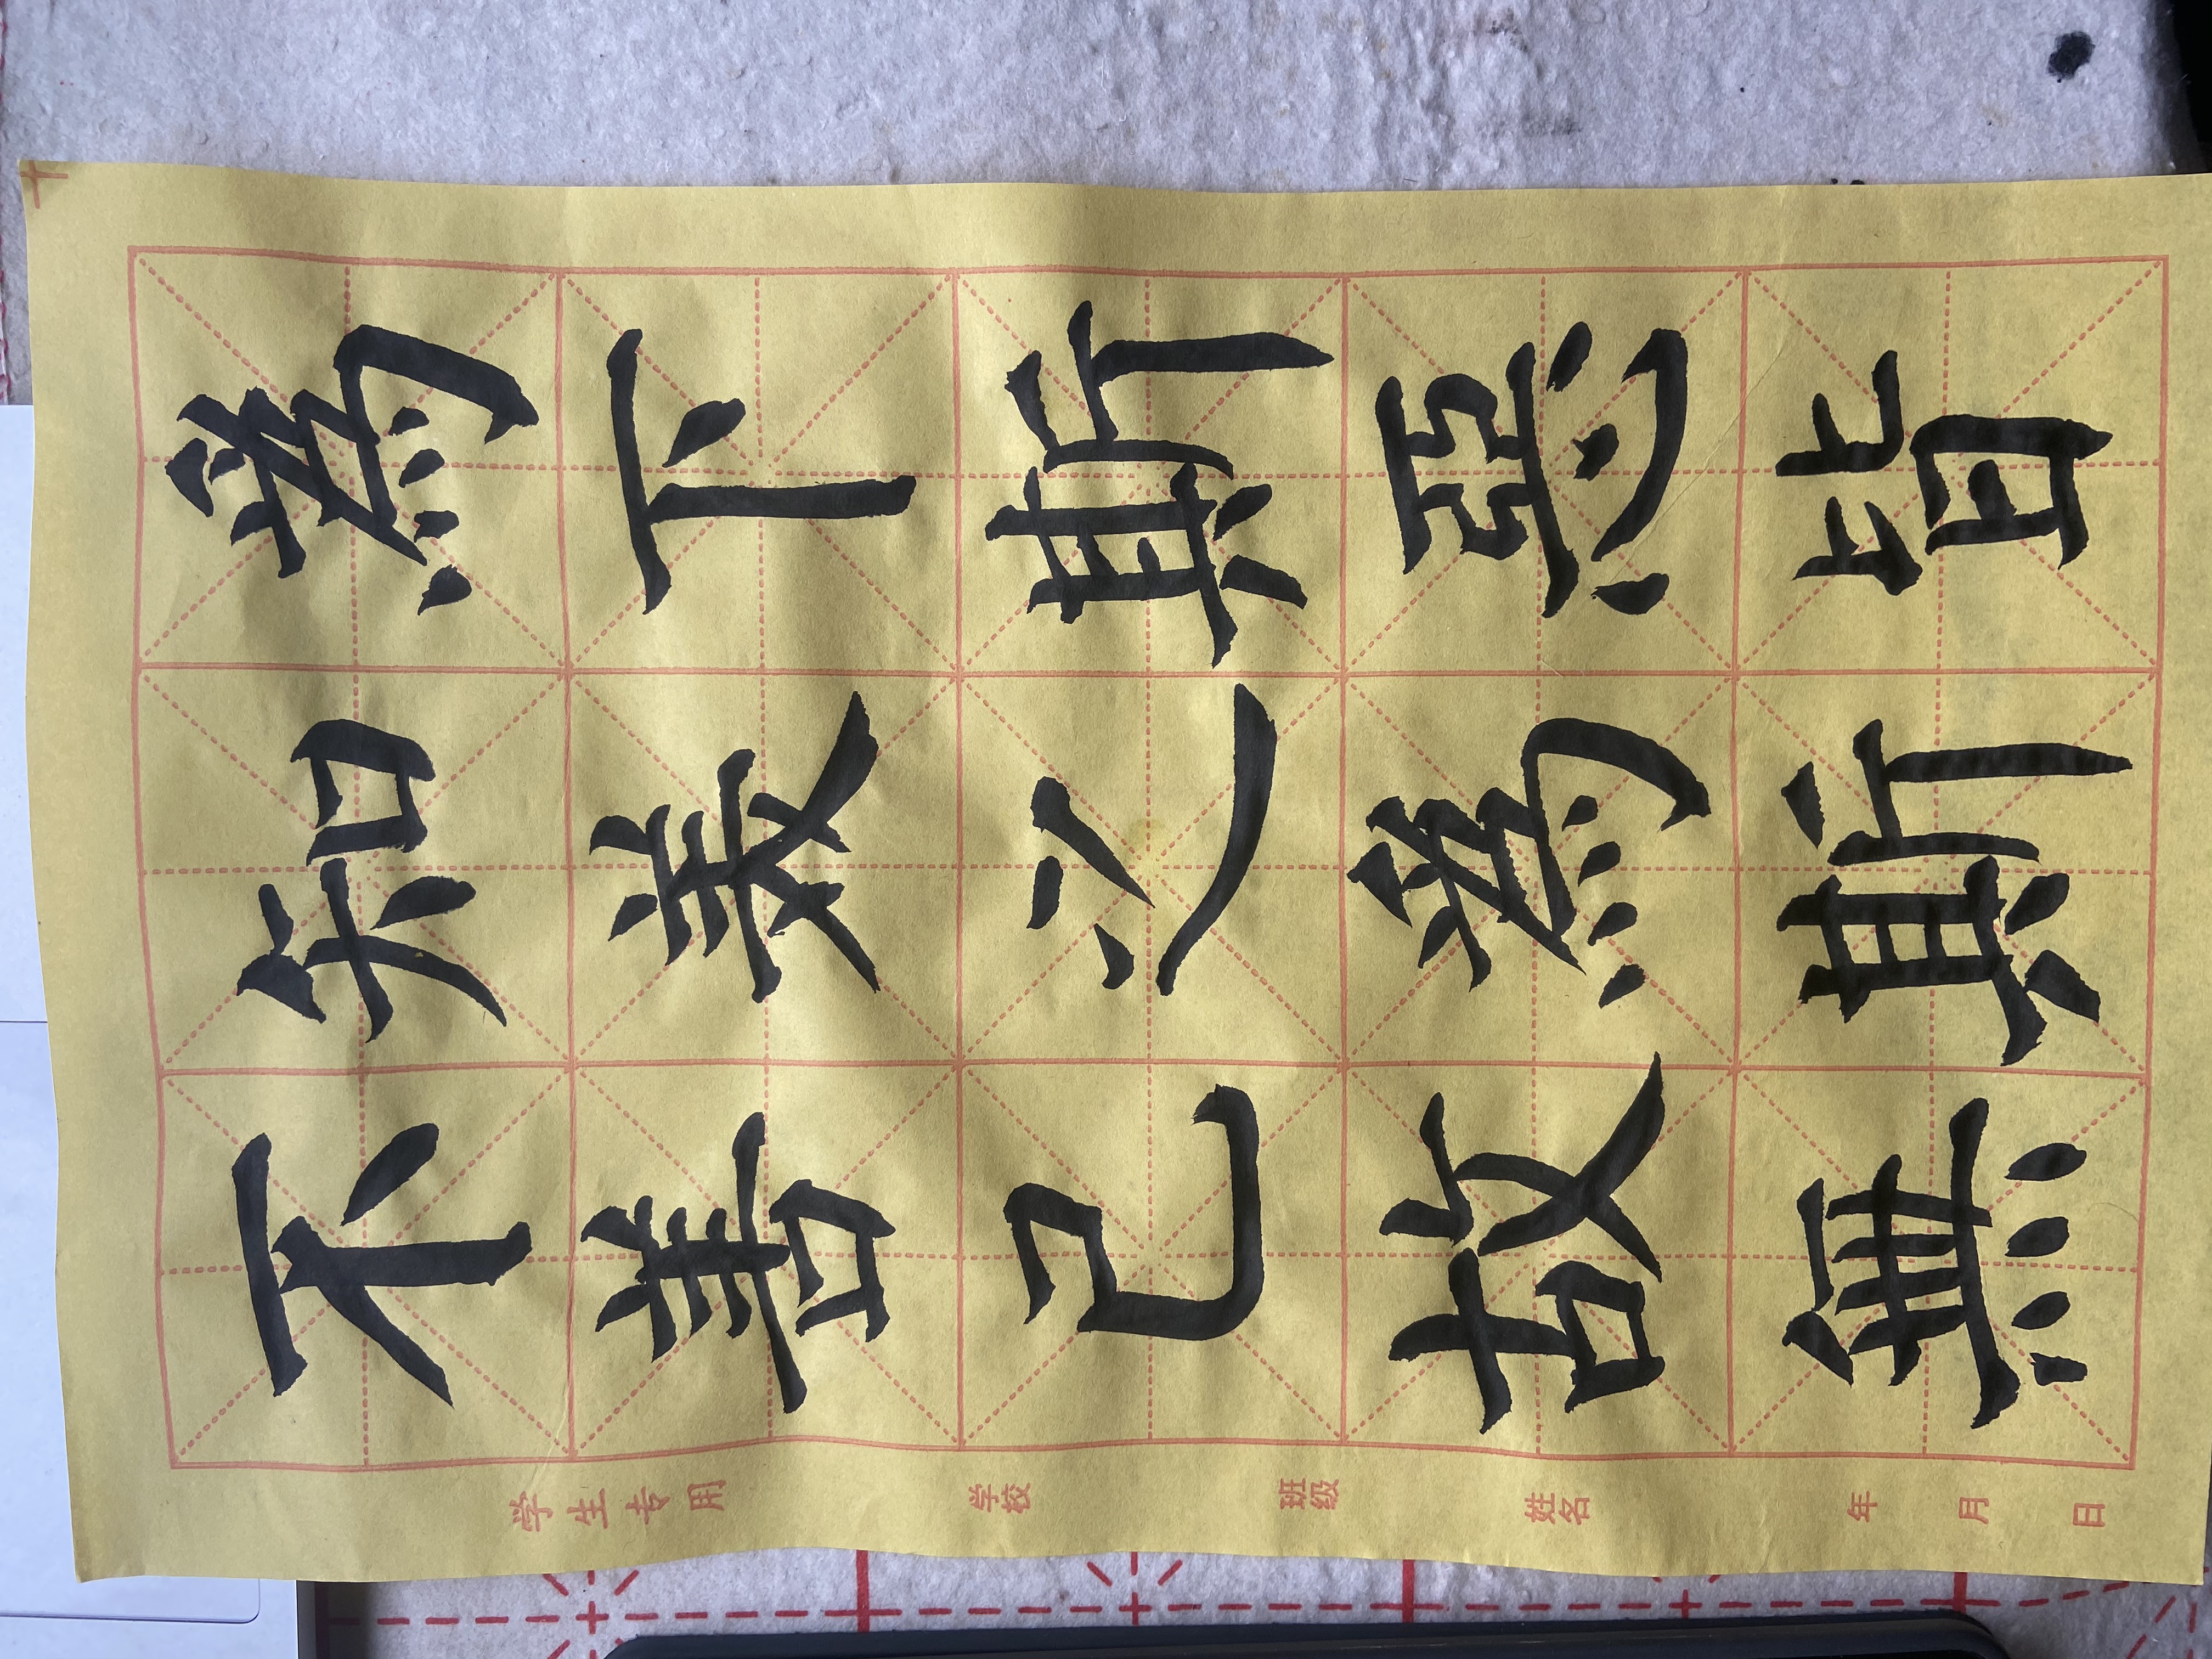 為下斯惡皆
知美之為斯
不善已故無
学生专用
学校
班级
姓名
年
月
日